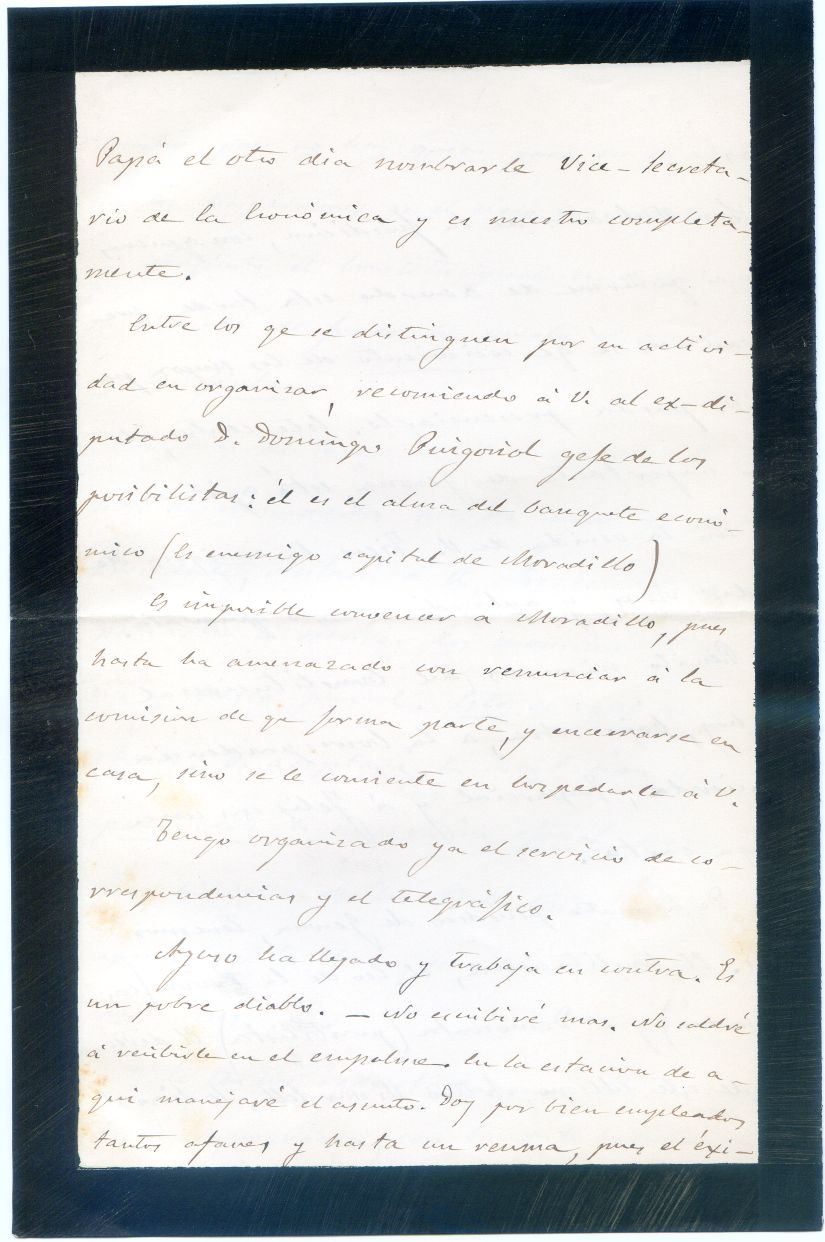 Papá el otro dia nombrarle Vice-Secreta-
rio de la Económica y es nuestro completa-
mente.
Entre los qe se distinguen por su activi-
dad en organizar, recomiendo á V. al ex-di-
putado D. Domingo Puigoriol gefe de los
posibilistas: él es el alma del banquete econó-
mico (Es enemigo capital de Moradillo)
Es imposible convencer á Moradillo, pues
hasta ha amenazado con renunciar á la
comision de qe forma parte, y encerrarse en
casa, sino se le consiente en hospedarle á V.
Tengo organizado ya el servicio de co-
rrespondencias y el telegráfico.
Ayuso ha llegado y trabaja en contra. Es
un pobre diablo. — No escribiré mas. No saldré
á recibirle en el empalme. En la estacion de a-
qui manejaré el asunto. Doy por bien empleados
tantos afanes y hasta un reuma, pues el éxi-